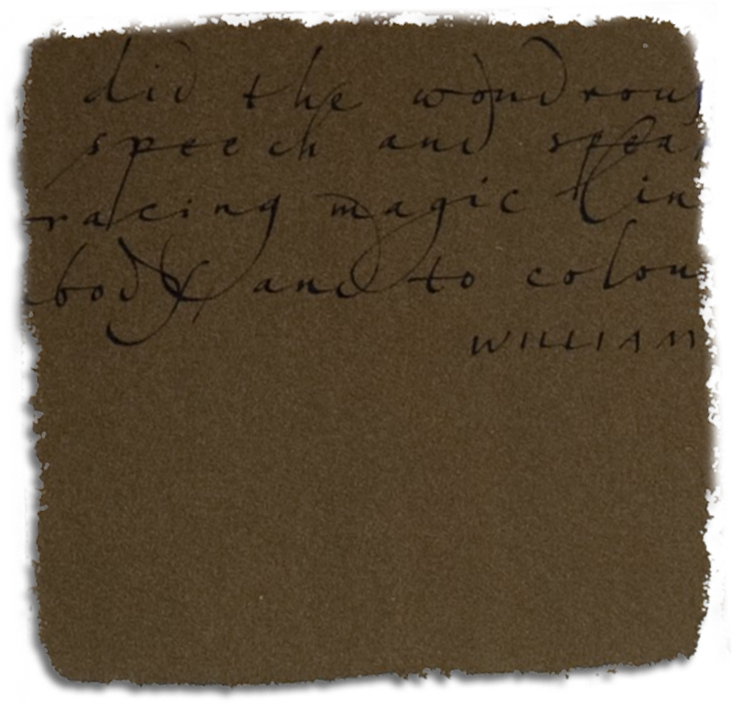 did the wondrous
speech and spea
racing magic lin
body, and to colou
WILLIAM